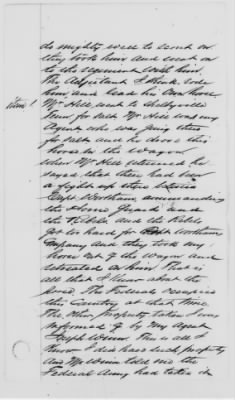 do mighty well to count on
they took him and went on
to the regiment with him.
The Adjutant I think rode
him and lead his own horse
Item 1. Mr Hill went to Shelbyville
Tenn for salt Mr Hill was my
Agent who was going there
for salt and he drove this
horse in the wagon
when Mr Hill returned he
sayed that there had been
a fight up there between
Capt Wortham commanding
the Home Guard and
the Rebels and the Rebels
got to hard for Capt Worthams
Company and they took my
horse out of the wagon and
retreated on him That is
all that I know about the
horse. The Federals occupied
this Country at that time
The other property taken I was
informed of by my Agent
Joseph Winn This is all I
know I did have such property
and Mr Winn told me the
Federal Army had taken it